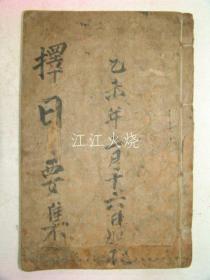 擇日要集
乙未年 月十六日
江江火烧